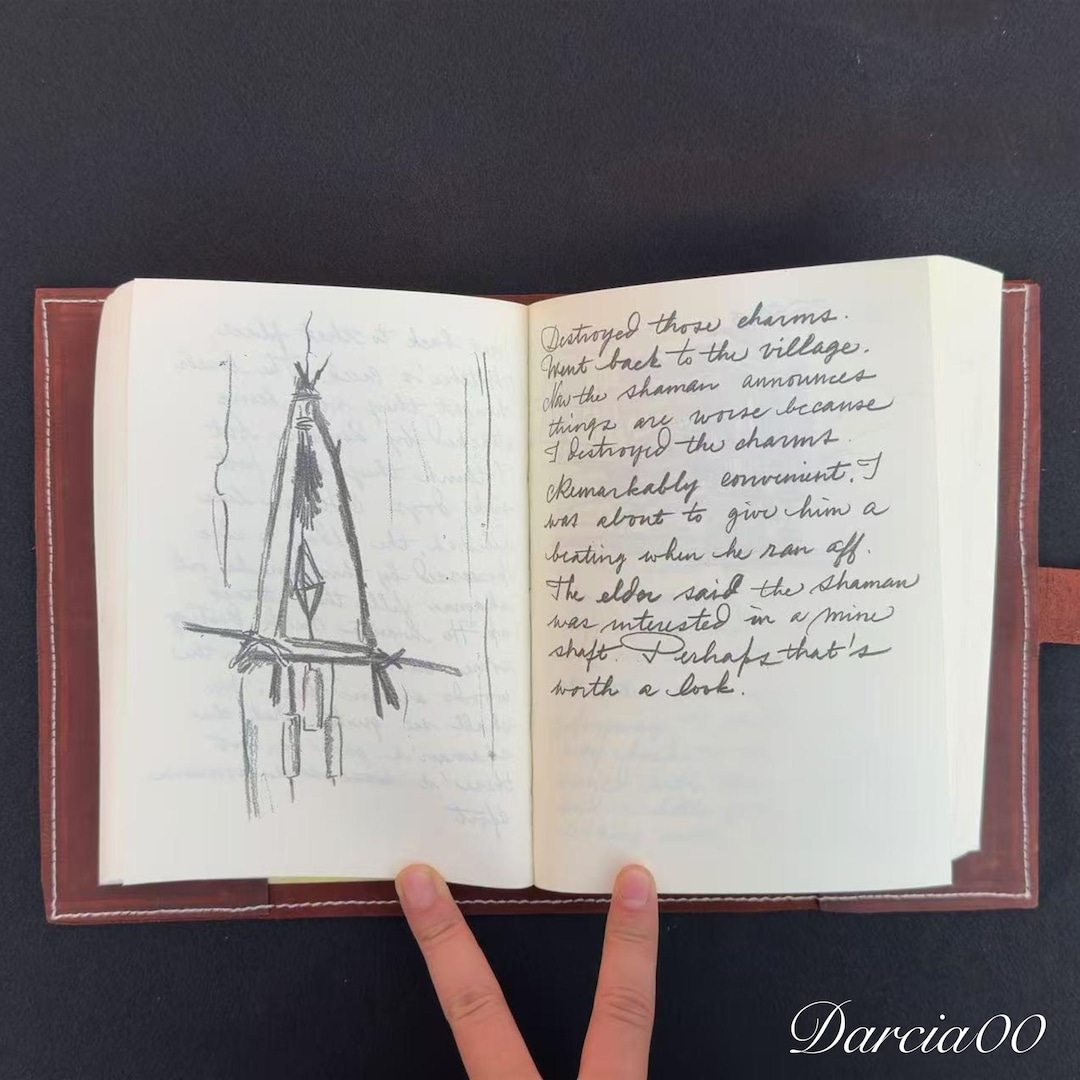 Destroyed those charms.
Went back to the village.
Now the shaman announces
things are worse because
I destroyed the charms.
Remarkably convenient. I
was about to give him a
beating when he ran off.
The elder said the shaman
was interested in a mine
shaft. Perhaps that's
worth a look.
Darcia00